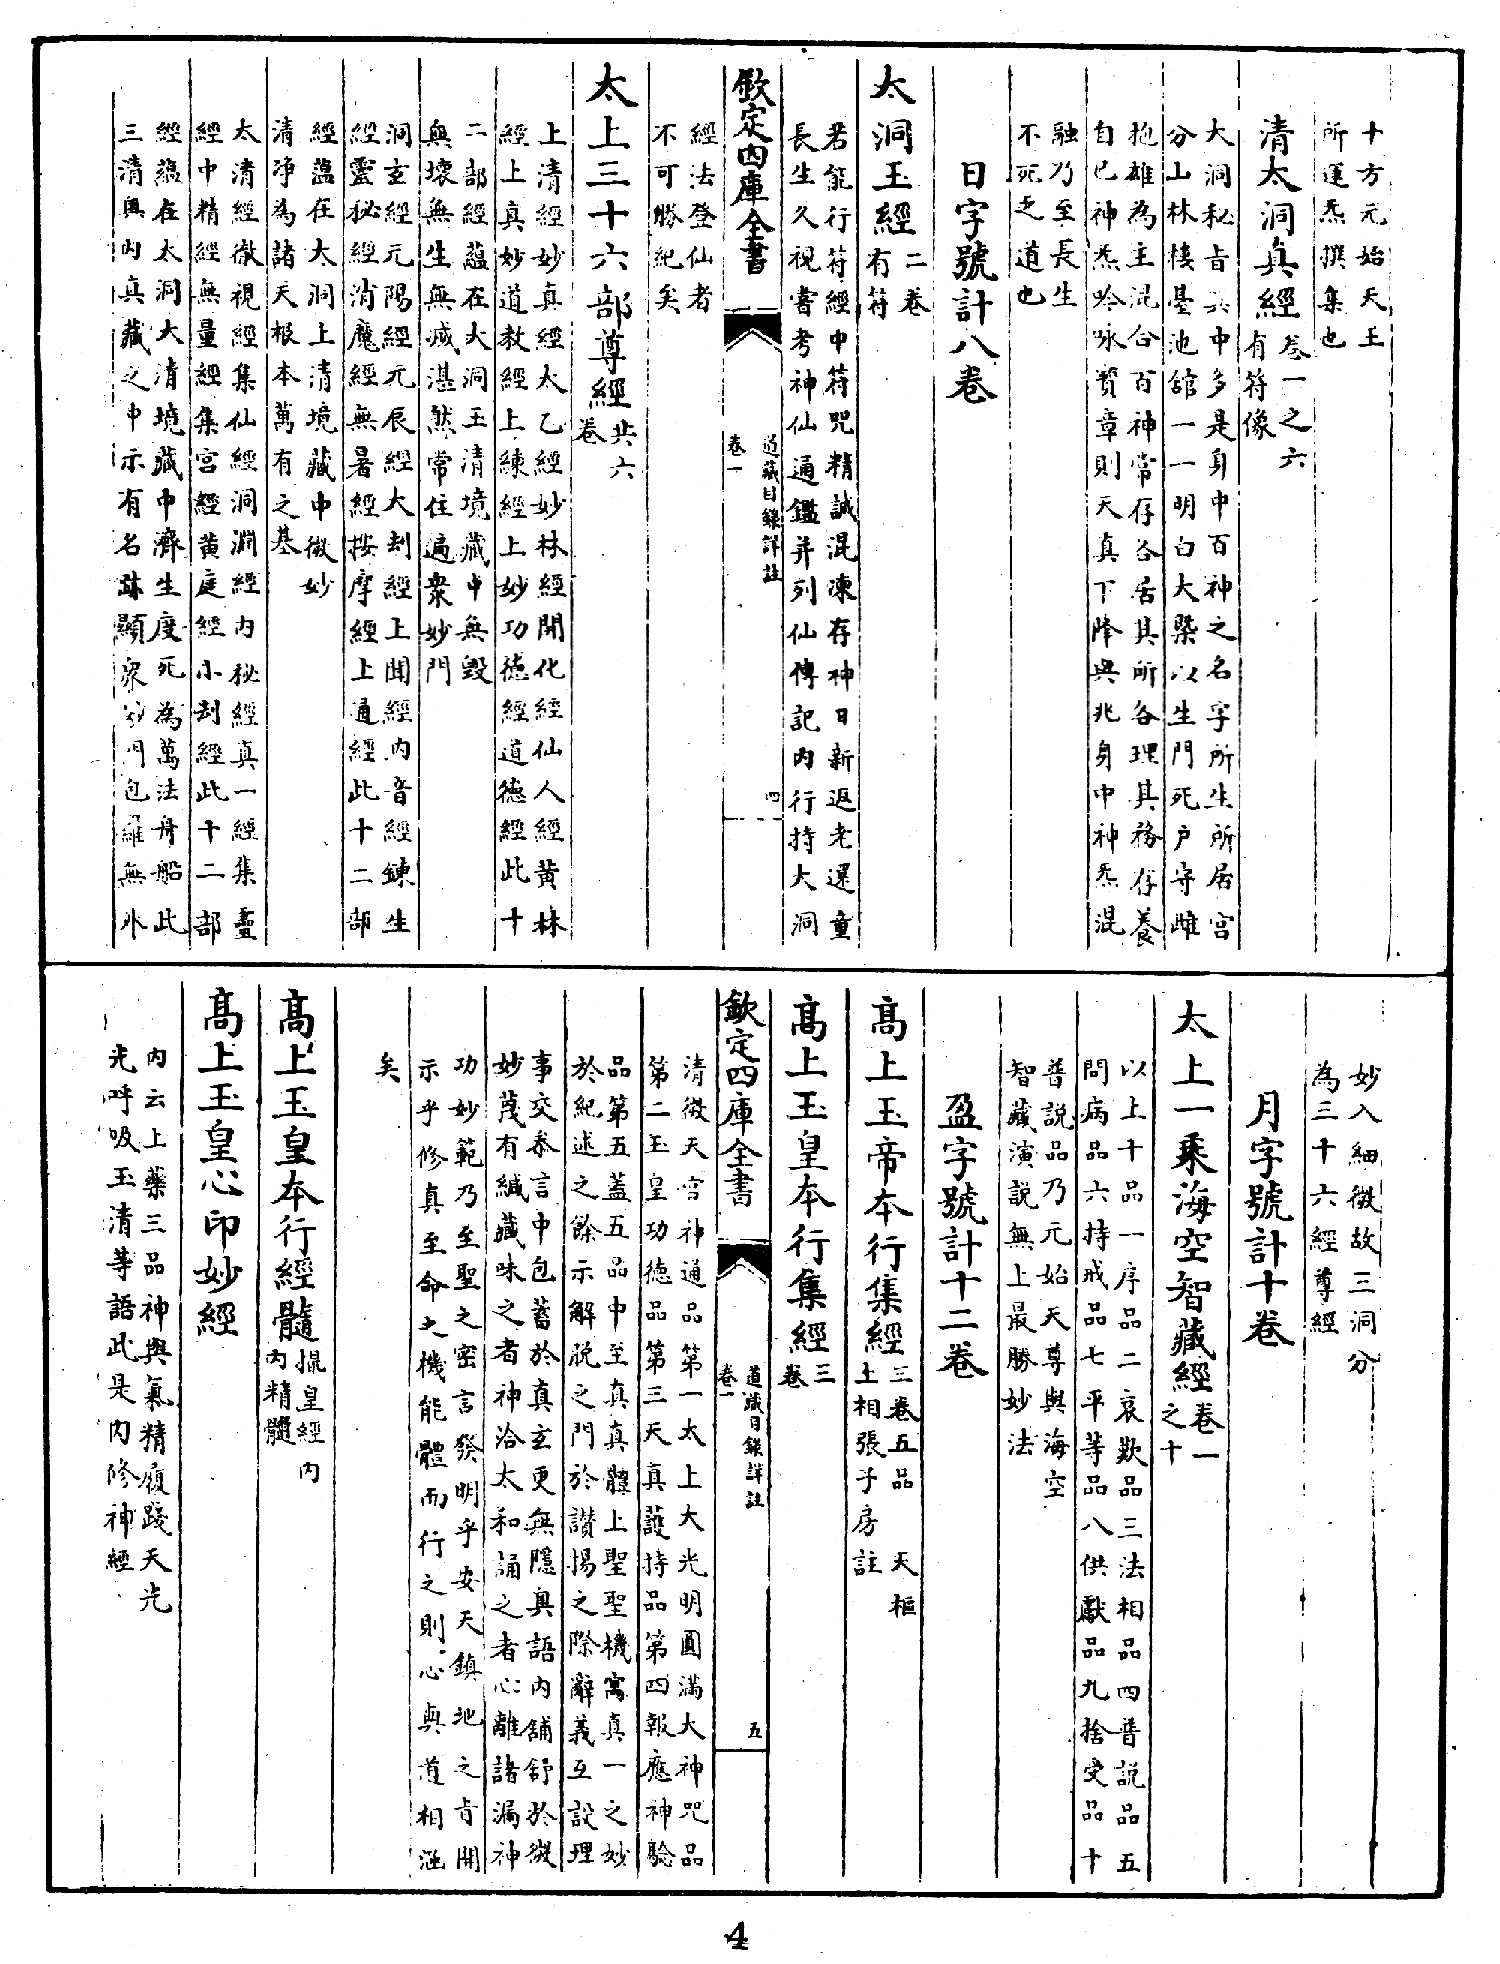 十方元始天王
所運炁撰集也
清太洞真經卷一之六
有符像
大洞秘旨其中多是身中百神之名字所生所居宮
分山林樓臺池舘一一明白大槩以生門死户守雌
抱雄為主混合百神常存各居其所各理其務存養
自己神炁吟咏寳章則天真下降與兆身中神炁混
融乃至長生
不死之道也
日字號計八卷
太洞玉經二卷
有符
若能行符經中符咒精誠混凍存神日新返老還童
長生久視書考神仙通鑑并列仙傳記内行持大洞
欽定四庫全書
道藏目録詳註
卷一
四
經法登仙者
不可勝紀矣
太上三十六部尊經共六
卷
上清經妙真經太乙經妙林經開化經仙人經黄林
經上真妙道教經上練經上妙功德經道德經此十
二部經藴在大洞玉清境藏中無毁
無壞無生無滅湛然常住遍衆妙門
洞玄經元陽經元辰經大刦經上開經内音經鍊生
經靈秘經消魔經無暑經按摩經上通經此十二部
經藴在太洞上清境藏中微妙
清净為諸天根本萬有之基
太清經徹視經集仙經洞淵經内秘經真一經集靈
經中精經無量經集宮經黄庭經小刦經此十二部
經藴在太洞大清境藏中濟生度死為萬法舟船此
三清與内真藏之中示有名跡顯衆妙門包羅無外
妙入細微故三洞分
為三十六經尊經
月字號計十卷
太上一乘海空智藏經卷一
之十
以上十品一序品二哀歎品三法相品四普説品五
問病品六持戒品七平等品八供獻品九捨受品十
普説品乃元始天尊與海空
智藏演説無上最勝妙法
盈字號計十二卷
高上玉帝本行集經三卷五品　天樞
上相張子房註
高上玉皇本行集經三
卷
清微天宫神通品第一太上大光明圓滿大神咒品
第二玉皇功德品第三天真護持品第四報應神驗
欽定四庫全書
道藏目録詳註
卷一
五
品第五蓋五品中至真真體上聖聖機寓真一之妙
於紀述之餘示解脱之門於讃揚之際辭義互設理
事交叅言中包蓄於真玄更無隱奥語内舖舒於微
妙蔑有緘藏味之者神洽太和誦之者心離諸漏神
功妙範乃至聖之密言發明乎安天鎮地之旨開
示乎修真至命之機能體而行之則心與道相涵
矣
高上玉皇本行經髓掍皇經内
内精髓
高上玉皇心印妙經
内云上藥三品神與氣精履踐天光
光呼吸玉清等語此是内修神經
4